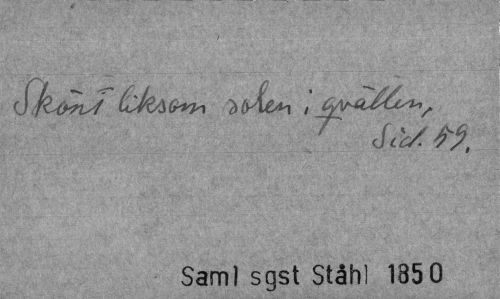 Skönt liksom solen i qvällen,
Sid. 59.
Saml sgst Ståhl 1850